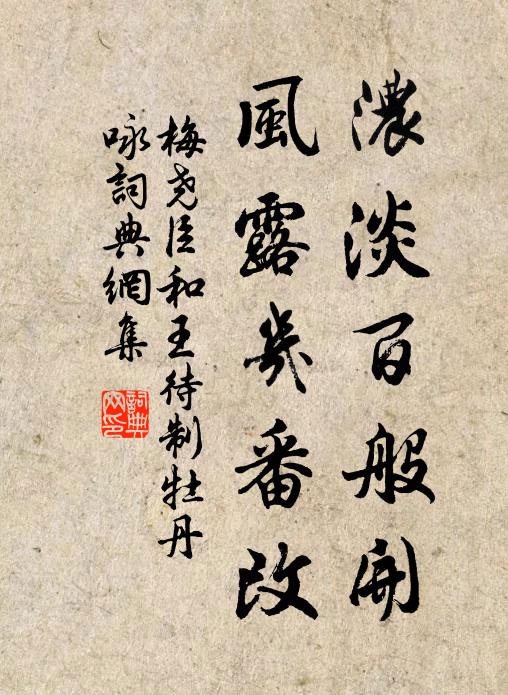 濃淡百般開
風露幾番改
梅堯臣和王待制牡丹
咏詞典網集
詞典網印